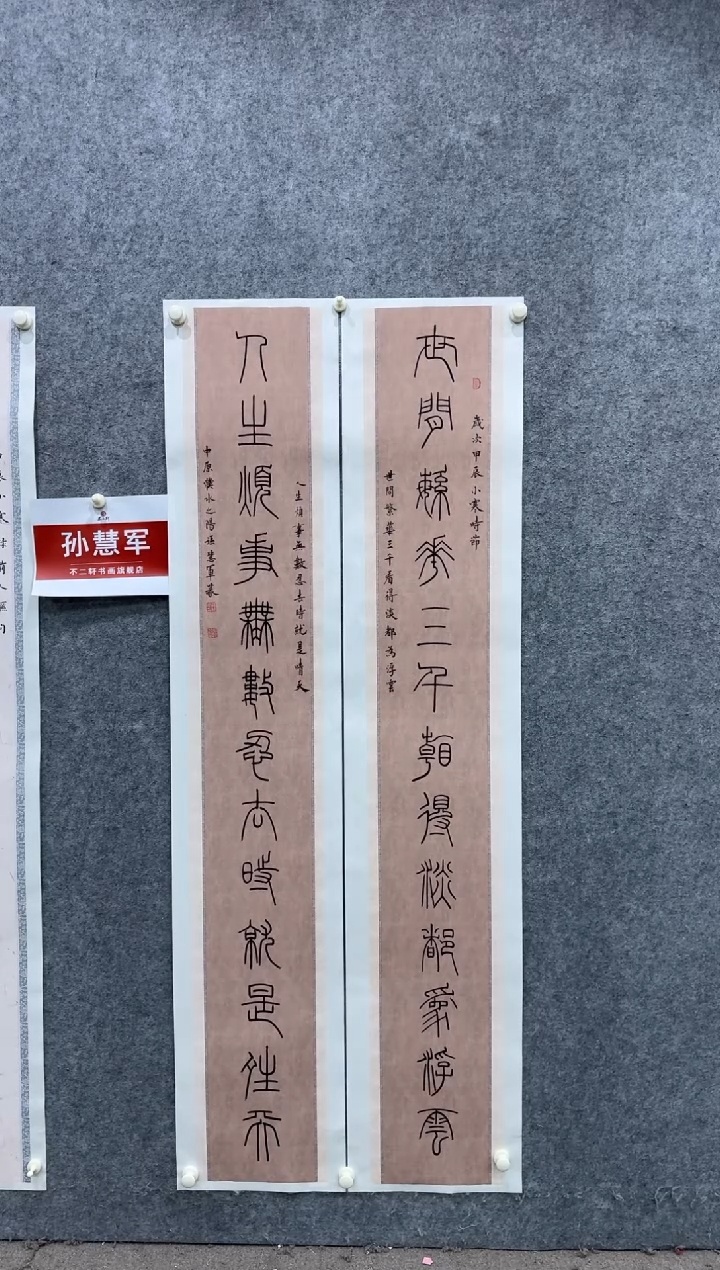 世間繁華三千看得淡都為浮雲
歲次甲辰小寒時節
世間繁華三千看得淡都為浮雲
人生煩事無數忍去時就是晴天
人生煩事無數忍去時就是晴天
中原濮水之陽孫慧軍篆
孙慧军
不二轩书画旗舰店